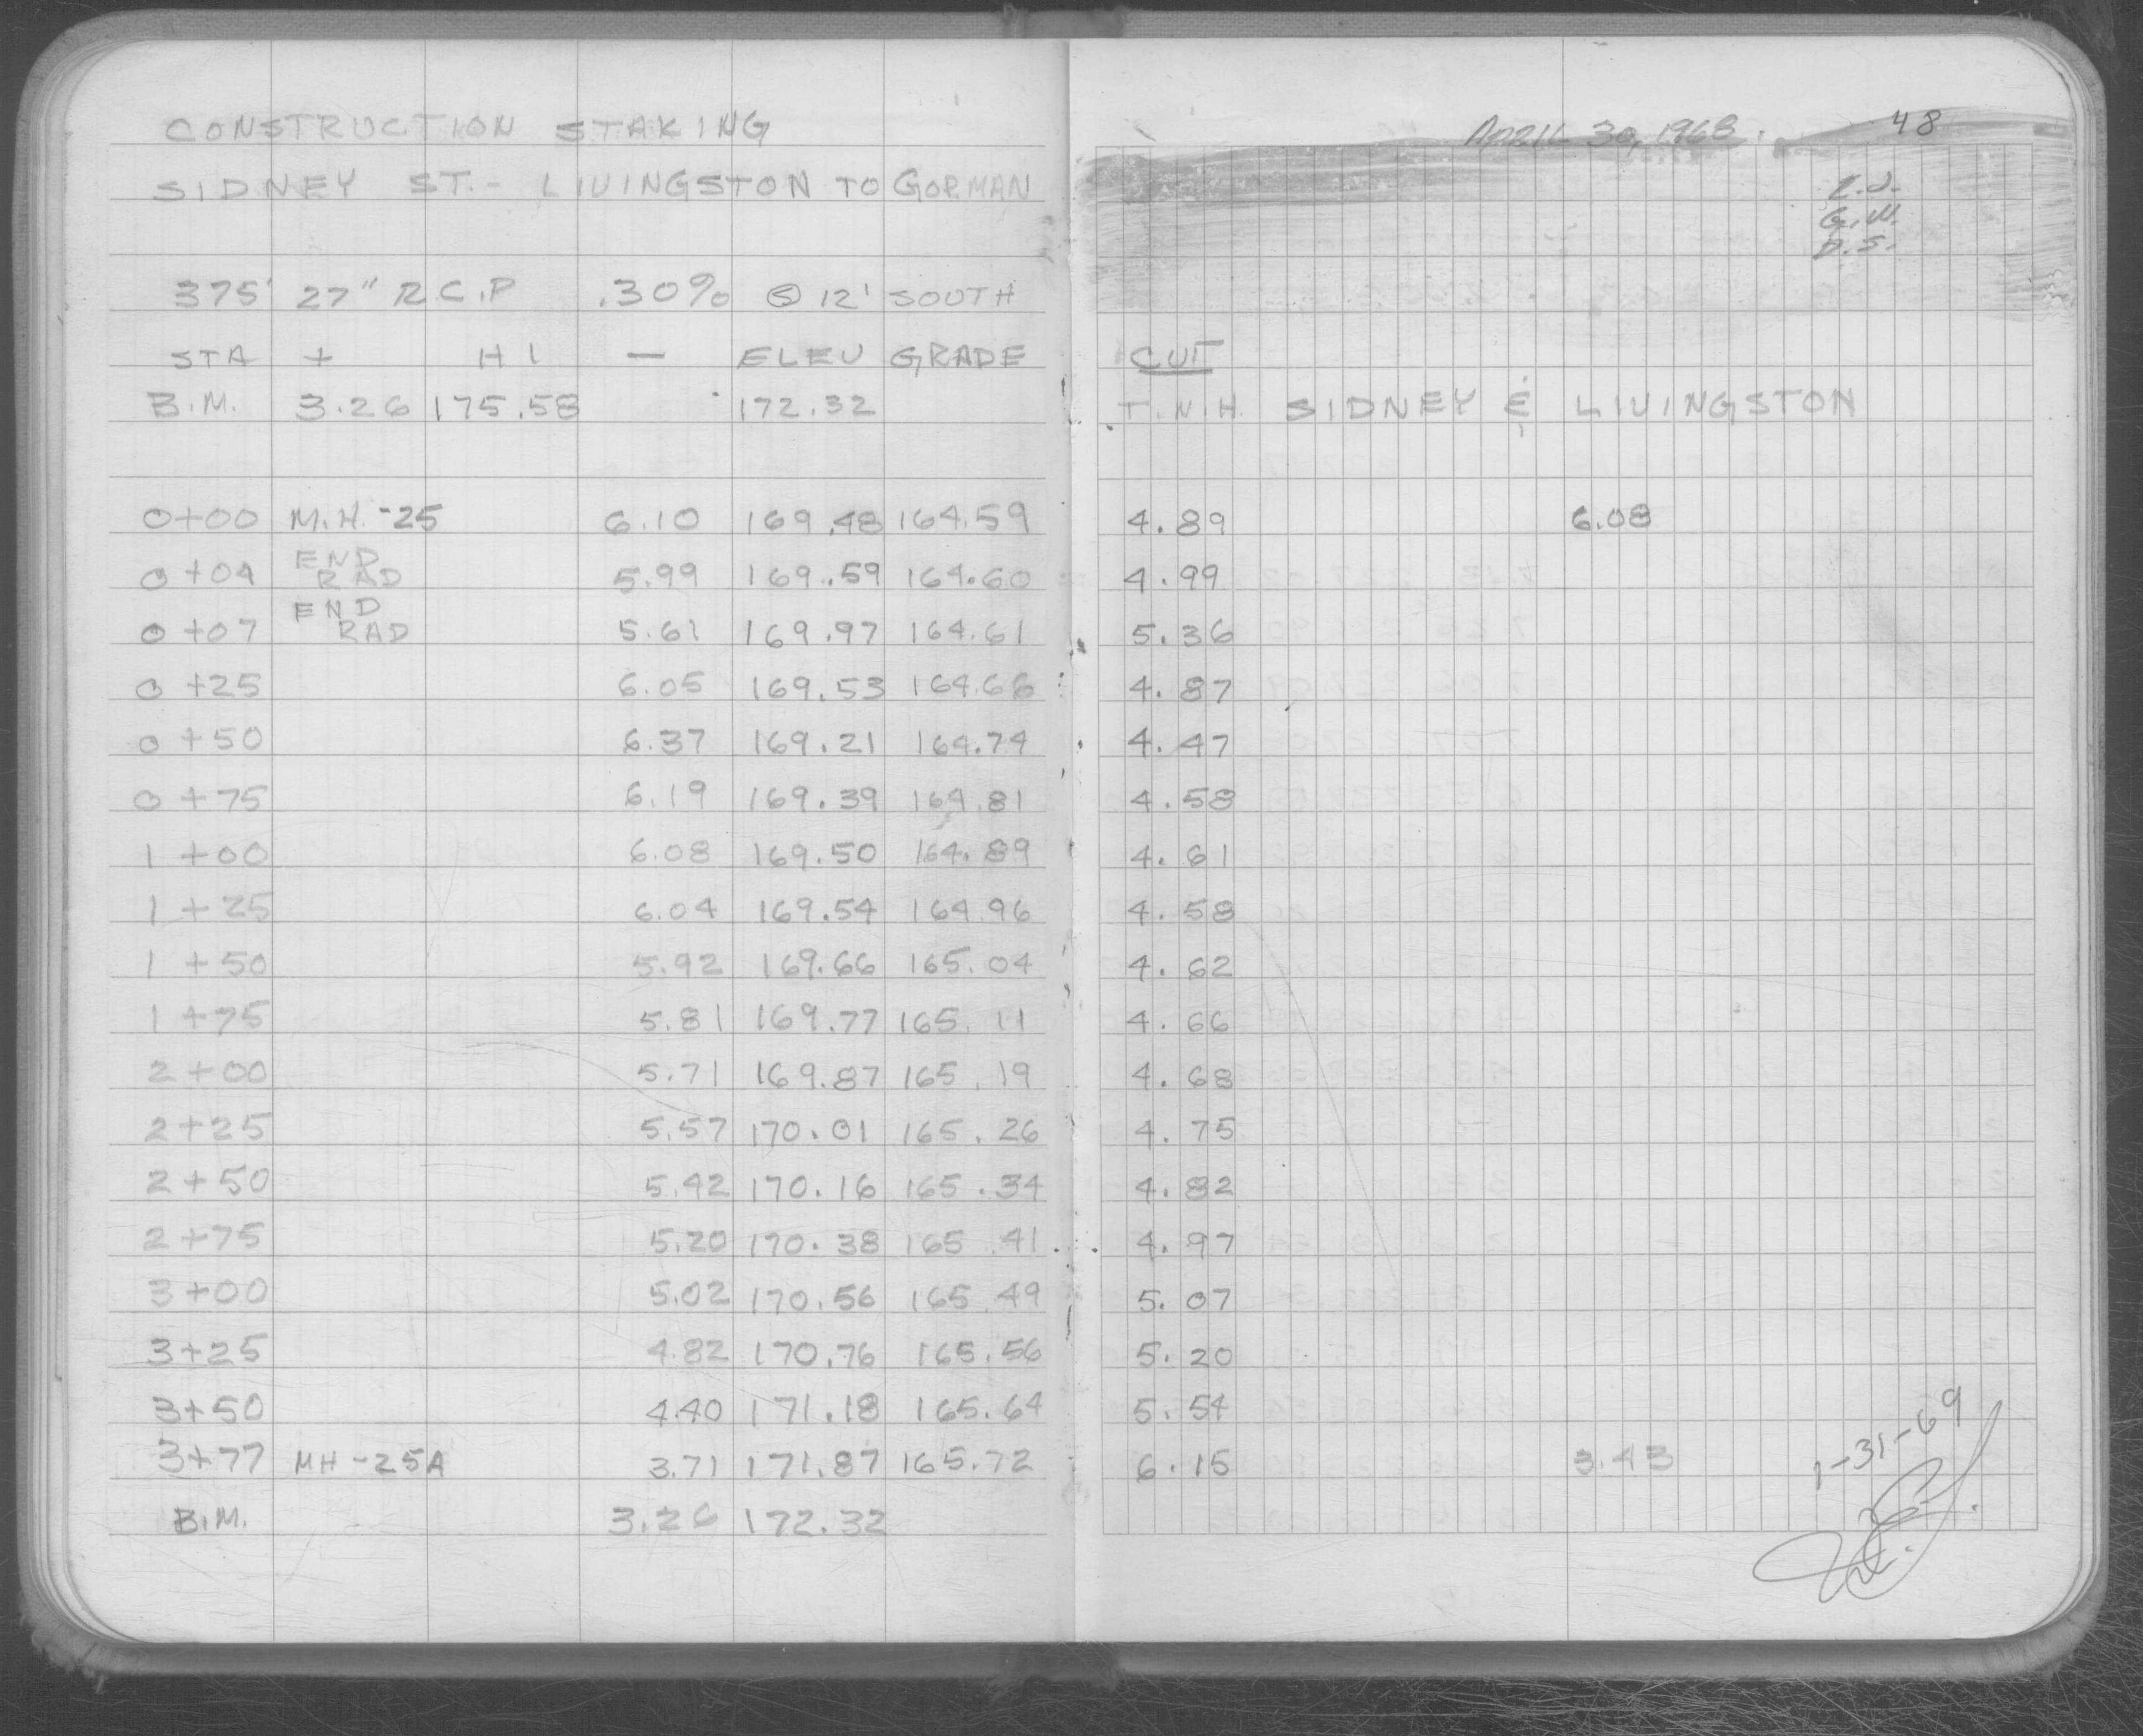 CONSTRUCTION STAKING
SIDNEY ST. - LIVINGSTON TO GORMAN
375' 27" R.C.P .30% @ 12' SOUTH
STA + HI — ELEV GRADE
B.M. 3.26 175.58 172.32
0+00 M.H.-25 6.10 169.48 164.59
0+04 END RAD 5.99 169.59 164.60
0+07 END RAD 5.61 169.97 164.61
0+25 6.05 169.53 164.66
0+50 6.37 169.21 164.74
0+75 6.19 169.39 164.81
1+00 6.08 169.50 164.89
1+25 6.04 169.54 164.96
1+50 5.92 169.66 165.04
1+75 5.81 169.77 165.11
2+00 5.71 169.87 165.19
2+25 5.57 170.01 165.26
2+50 5.42 170.16 165.34
2+75 5.20 170.38 165.41
3+00 5.02 170.56 165.49
3+25 4.82 170.76 165.56
3+50 4.40 171.18 165.64
3+77 MH-25A 3.71 171.87 165.72
B.M. 3.26 172.32
APRIL 30, 1968. 48
G.W.
D.S.
CUT
T.N.H. SIDNEY & LIVINGSTON
4.89 6.08
4.99
5.36
4.87
4.47
4.58
4.61
4.58
4.62
4.66
4.68
4.75
4.82
4.97
5.07
5.20
5.54
6.15 3.43
1-31-69